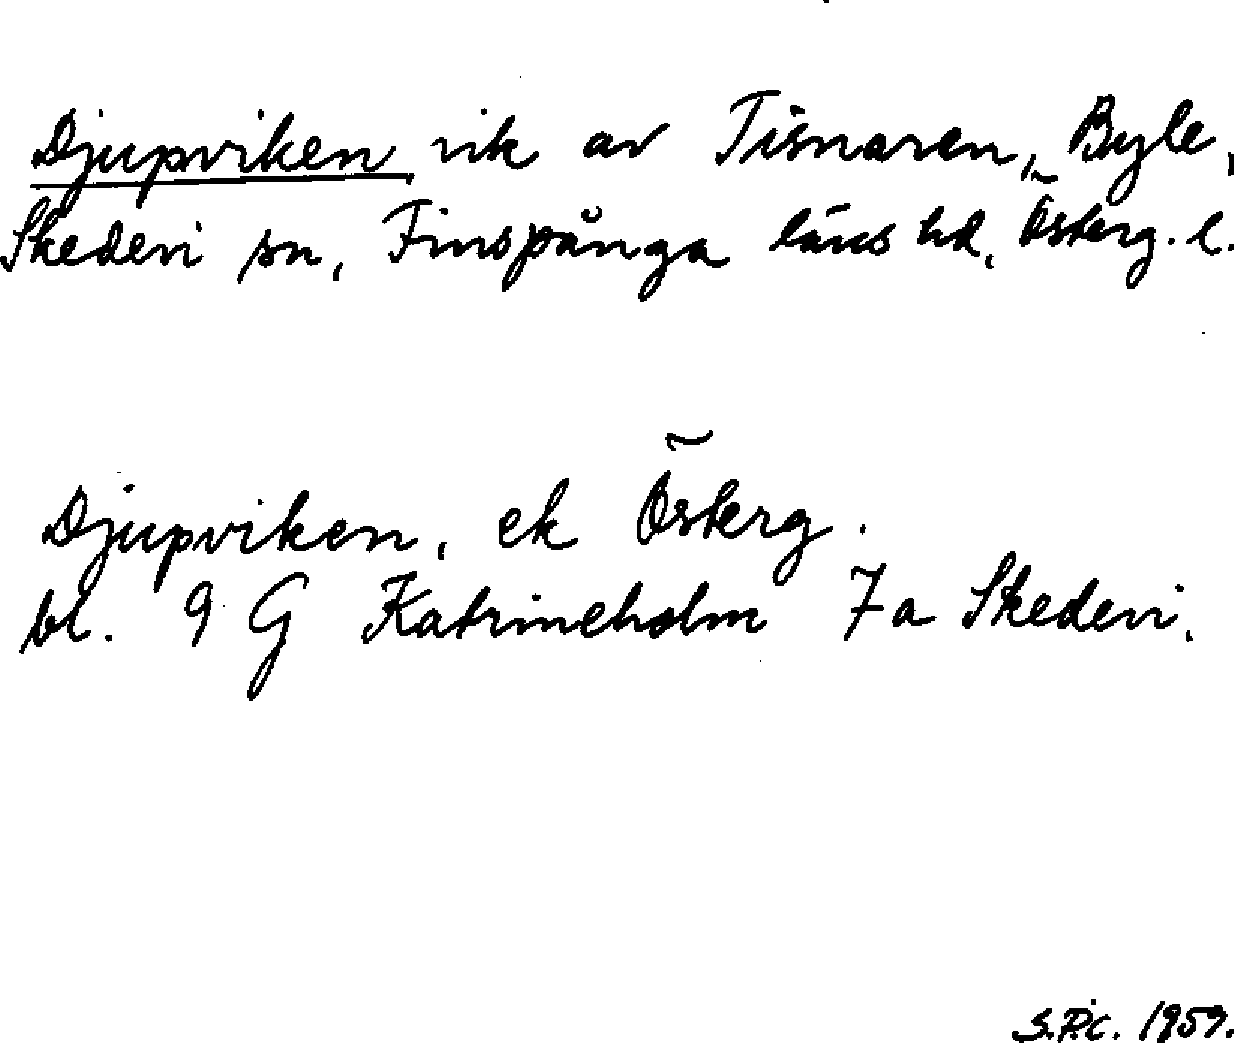 Djupviken vik av Tisnaren, Byle,
Skedevi sn, Finspånga läns hd, Österg. l.
Djupviken, ek Österg.
bl. 9 G Katrineholm 7 a Skedevi,
1959.